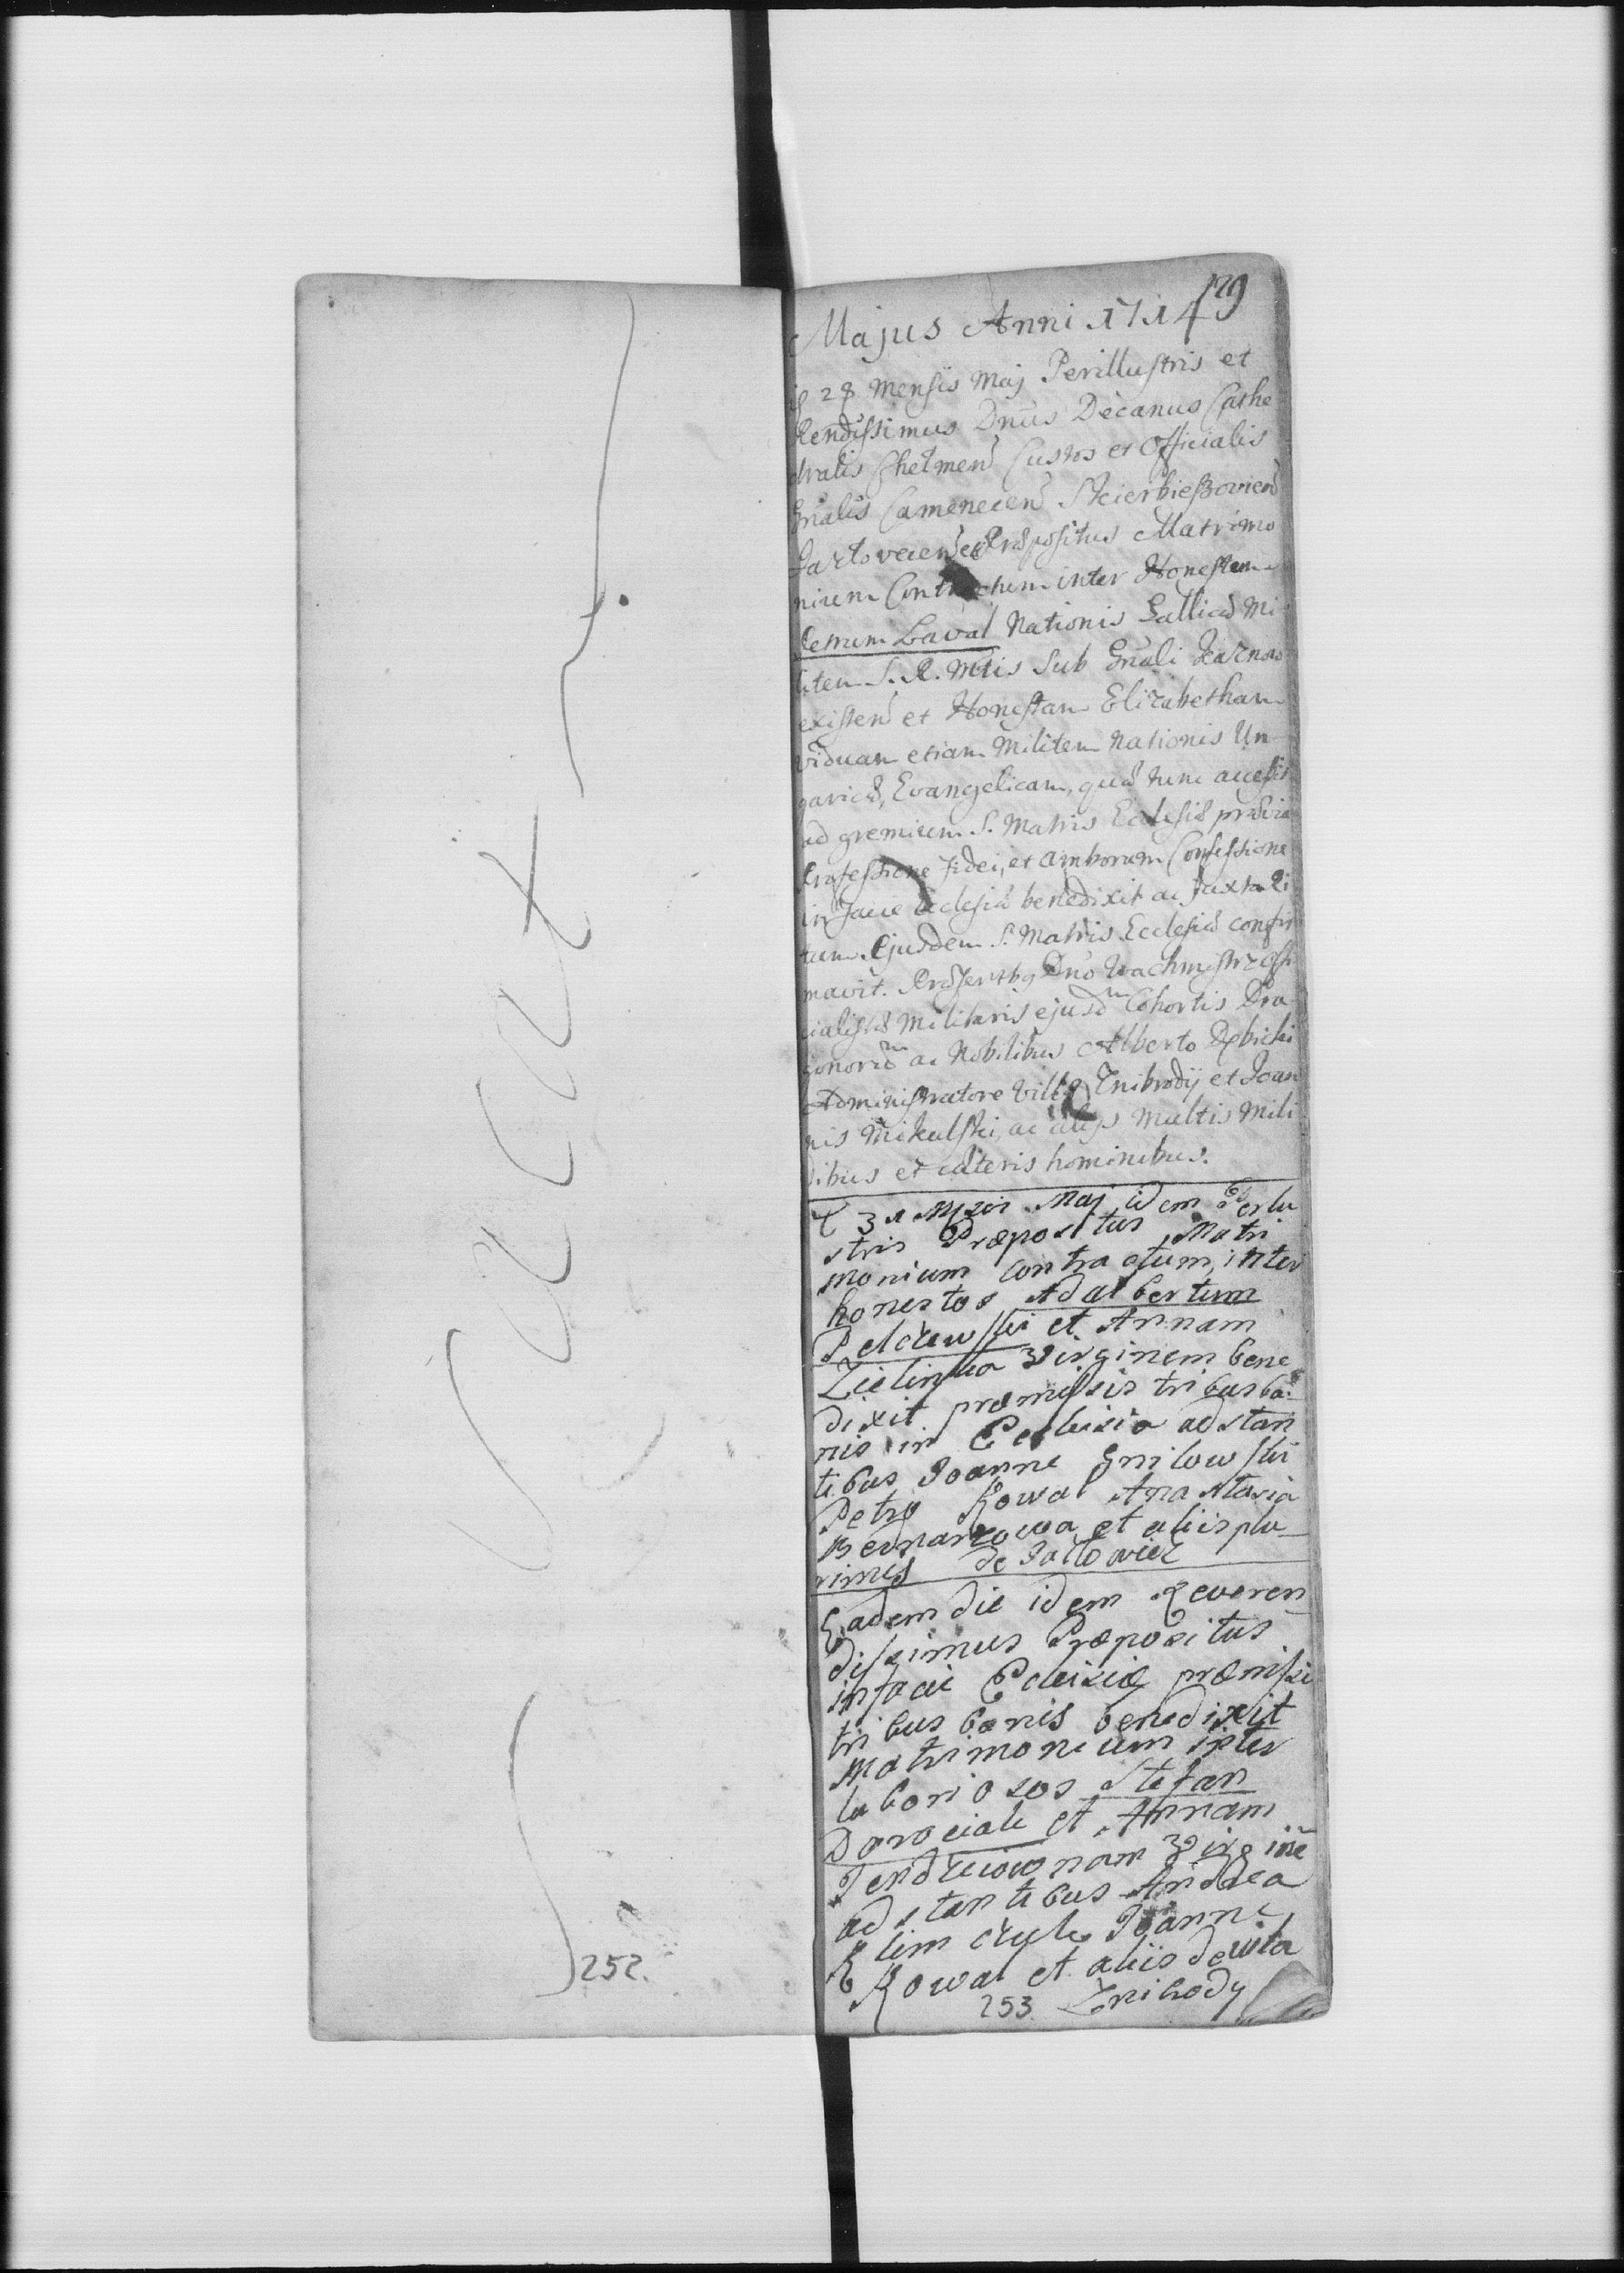 Vacat
252.
179
Majus Anni 1714
28 Mensis Maj Perillustris et
Rendissimus Dnus Decanus Cathe
dralis Chelmen Custos et Officialis
Gnalis Camenecen Skierbieszovien
Præpositus Matrimo
nium Contractum inter Honestum
Petrum Laval Nationis Gallicæ Mi
litem S. R. Mtis Sub Gnali
existen et Honestam Elizabetham
viduam etiam Militem Nationis Un
garicæ, Evangelicam, quæ tunc accessit
ad gremium S. Matris Ecclesiæ prævia
Professione Fidei, et amborum Confessione
in facie Ecclesiæ benedixit ac juxta Ri
tum Ejusdem S. Matris Ecclesiæ confir
mavit. Præsentbq Dno Wachmistrz offi
Militaris ejusdm Cohortis Dra
gonorum ac Nobilibus Alberto Dębicki
Administratore Villæ Znibrody et Joan
nis Mikulski, ac alys Multis Mili
tibus et cæteris hominibus.
31 Maj idem Perlu
stris Præpositus Matri
monium contractum inter
honestos Adalbertum
Pelczewski et Annam
Zielinska Virginem bene
dixit præmissis tribus ba
nis in Eclesia adstan
tibus Joanne Gnilowski
Petro Kowal Anastasia
Bednarzowa et aliis plu
rimis de
Eadem die idem Reveren
dissimus Præpositus
in facie Eclesiæ præmissi
tribus banis benedixit
Matrimonium inter
laboriosos Stefan
et Annam
Virginē
adstantibus Andrea
Joanne
Kowal et aliis de villa
Znibrody
253